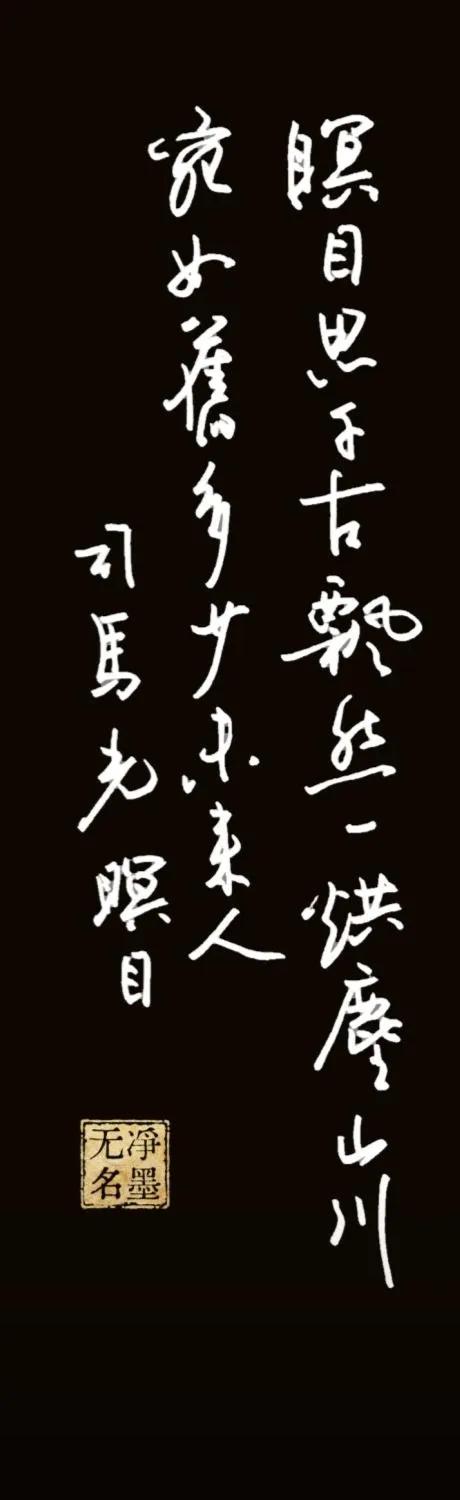 瞑目思千古飘然一烘塵山川
宛如舊多少未来人
司馬光瞑目
净墨
无名